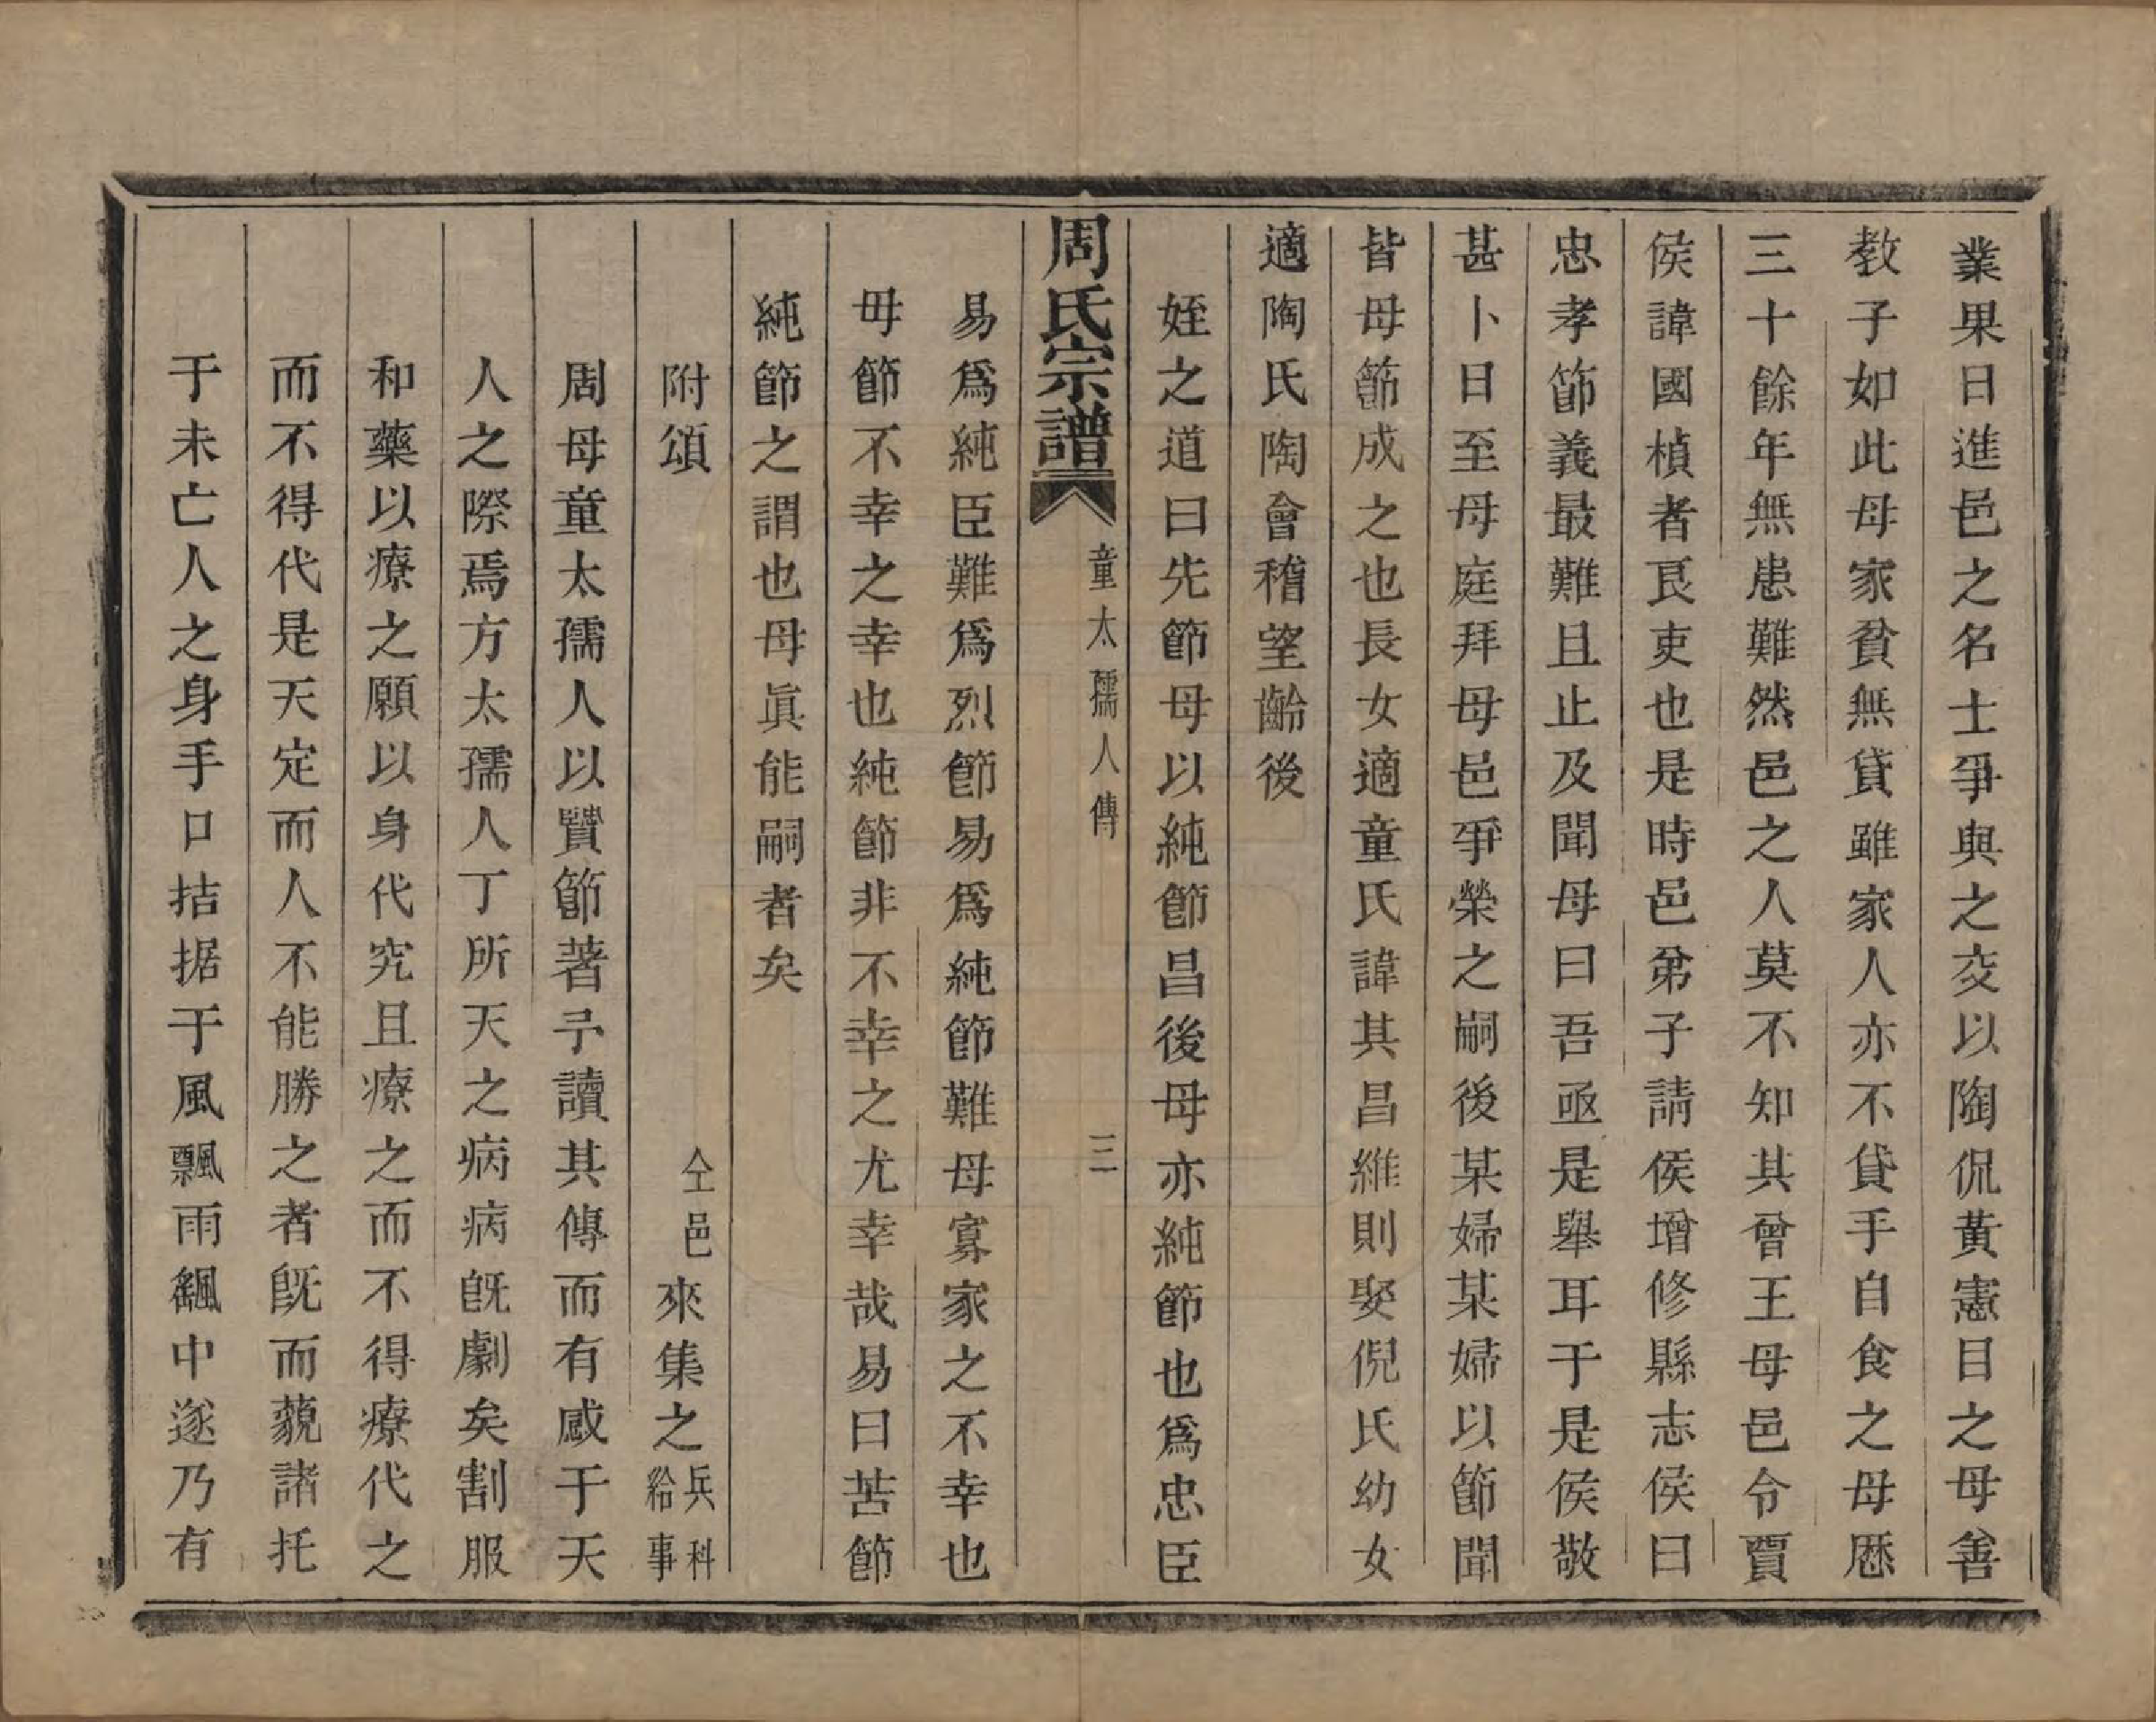 業果日進邑之名士爭與之交以陶侃黃憲目之母善
教子如此母家貧無貸雖家人亦不貸手自食之母歷
三十餘年無患難然邑之人莫不知其曾王母邑令賈
侯諱國楨者良吏也是時邑弟子請侯增修縣志侯曰
忠孝節義最難且止及聞母曰吾亟是舉耳于是侯敬
甚卜日至母庭拜母邑爭榮之嗣後某婦某婦以節聞
皆母節成之也長女適童氏諱其昌維則娶倪氏幼女
適陶氏陶會稽望齡後
姪之道曰先節母以純節昌後母亦純節也爲忠臣
周氏宗譜
童太孺人傳
三
易爲純臣難爲烈節易爲純節難母寡家之不幸也
母節不幸之幸也純節非不幸之尤幸哉易曰苦節
純節之謂也母眞能嗣者矣
附頌
仝邑來集之兵科給事
周母童太孺人以賢節著予讀其傳而有感于天
人之際焉方太孺人丁所天之病病旣劇矣割股
和藥以療之願以身代究且療之而不得療代之
而不得代是天定而人不能勝之者旣而藐諸托
于未亡人之身手口拮据于風飄雨颻中遂乃有